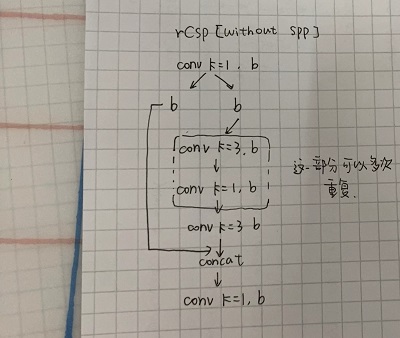 rCsp [without spp]
conv k=1, b
b b
conv k=3, b
conv k=1, b
这一部分可以多次
重复.
conv k=3 b
concat
conv k=1, b